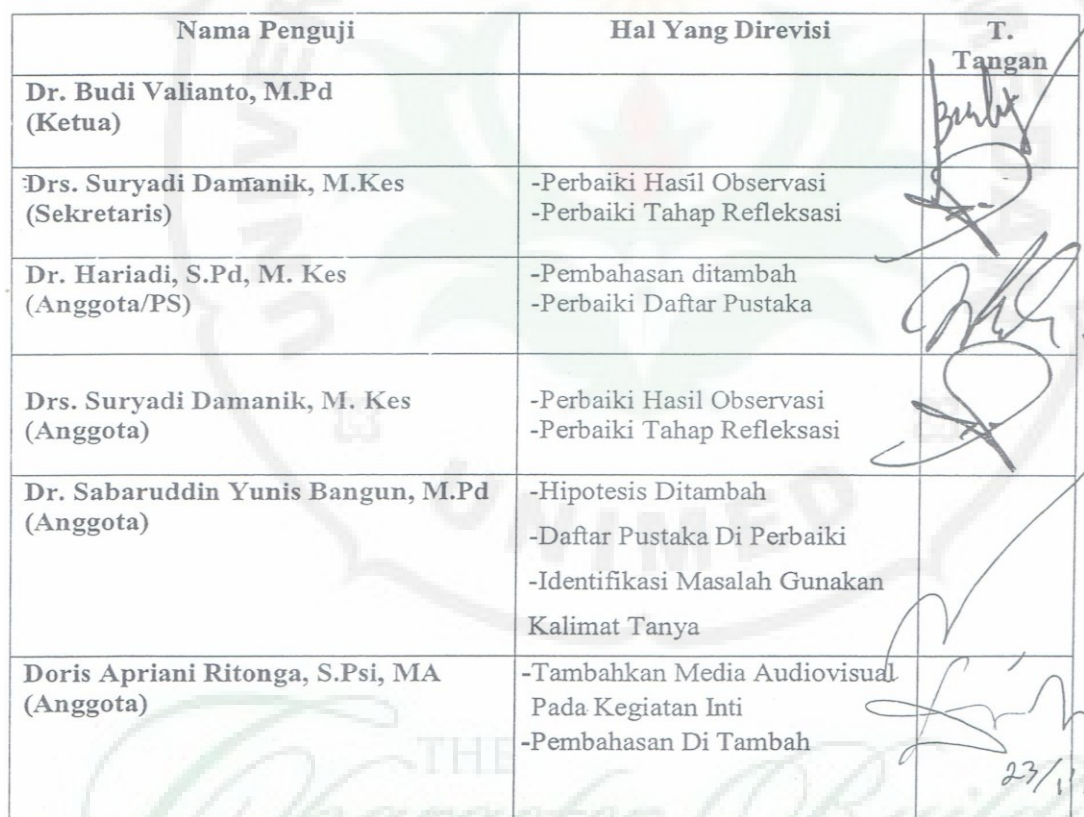 Nama Penguji
Hal Yang Direvisi
T.
Tangan
Dr. Budi Valianto, M.Pd
(Ketua)
Drs. Suryadi Damanik, M.Kes
(Sekretaris)
-Perbaiki Hasil Observasi
-Perbaiki Tahap Refleksasi
Dr. Hariadi, S.Pd, M. Kes
(Anggota/PS)
-Pembahasan ditambah
-Perbaiki Daftar Pustaka
Drs. Suryadi Damanik, M. Kes
(Anggota)
-Perbaiki Hasil Observasi
-Perbaiki Tahap Refleksasi
Dr. Sabaruddin Yunis Bangun, M.Pd
(Anggota)
-Hipotesis Ditambah
-Daftar Pustaka Di Perbaiki
-Identifikasi Masalah Gunakan
Kalimat Tanya
Doris Apriani Ritonga, S.Psi, MA
(Anggota)
-Tambahkan Media Audiovisual
Pada Kegiatan Inti
-Pembahasan Di Tambah
UNIMED
THE